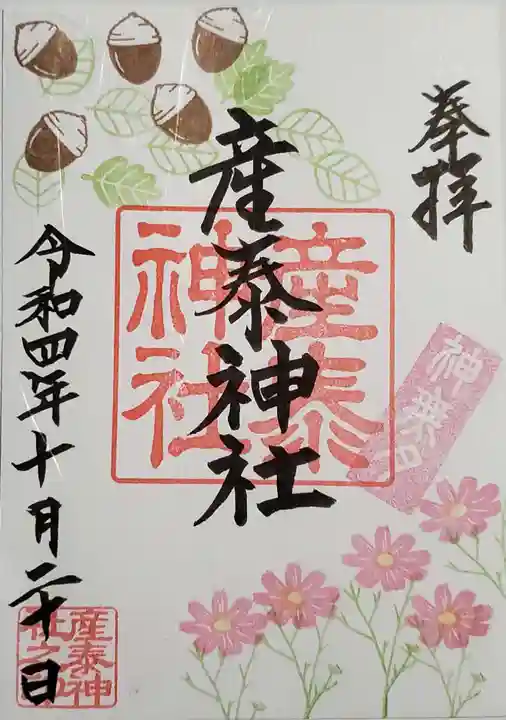 奉拝
神無月
産泰神社
産泰神社
令和四年十月二十日
産泰神社之印